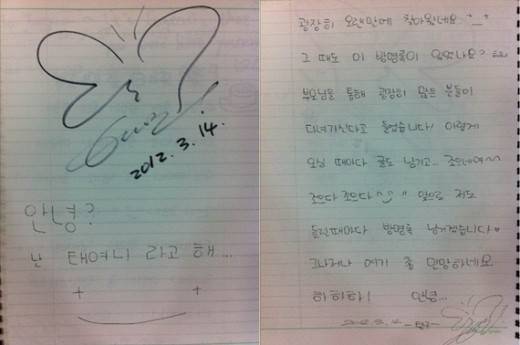 2012. 3. 14.
안녕?
난 태여니 라고 해...
굉장히 오랜만에 찾아왔네요 ^_^
그 때도 이 방명록이 있었나요?
부모님을 통해 굉장히 많은 분들이
다녀가신다고 들었습니다! 이렇게
오실 때마다 글도 남기고... 조으네여~~
조으다 조으다 ^^ 앞으로 저도
들릴때마다 방명록 남기겠습니다
그나저나 여기 좀 민망하네요
히히히! 안녕...